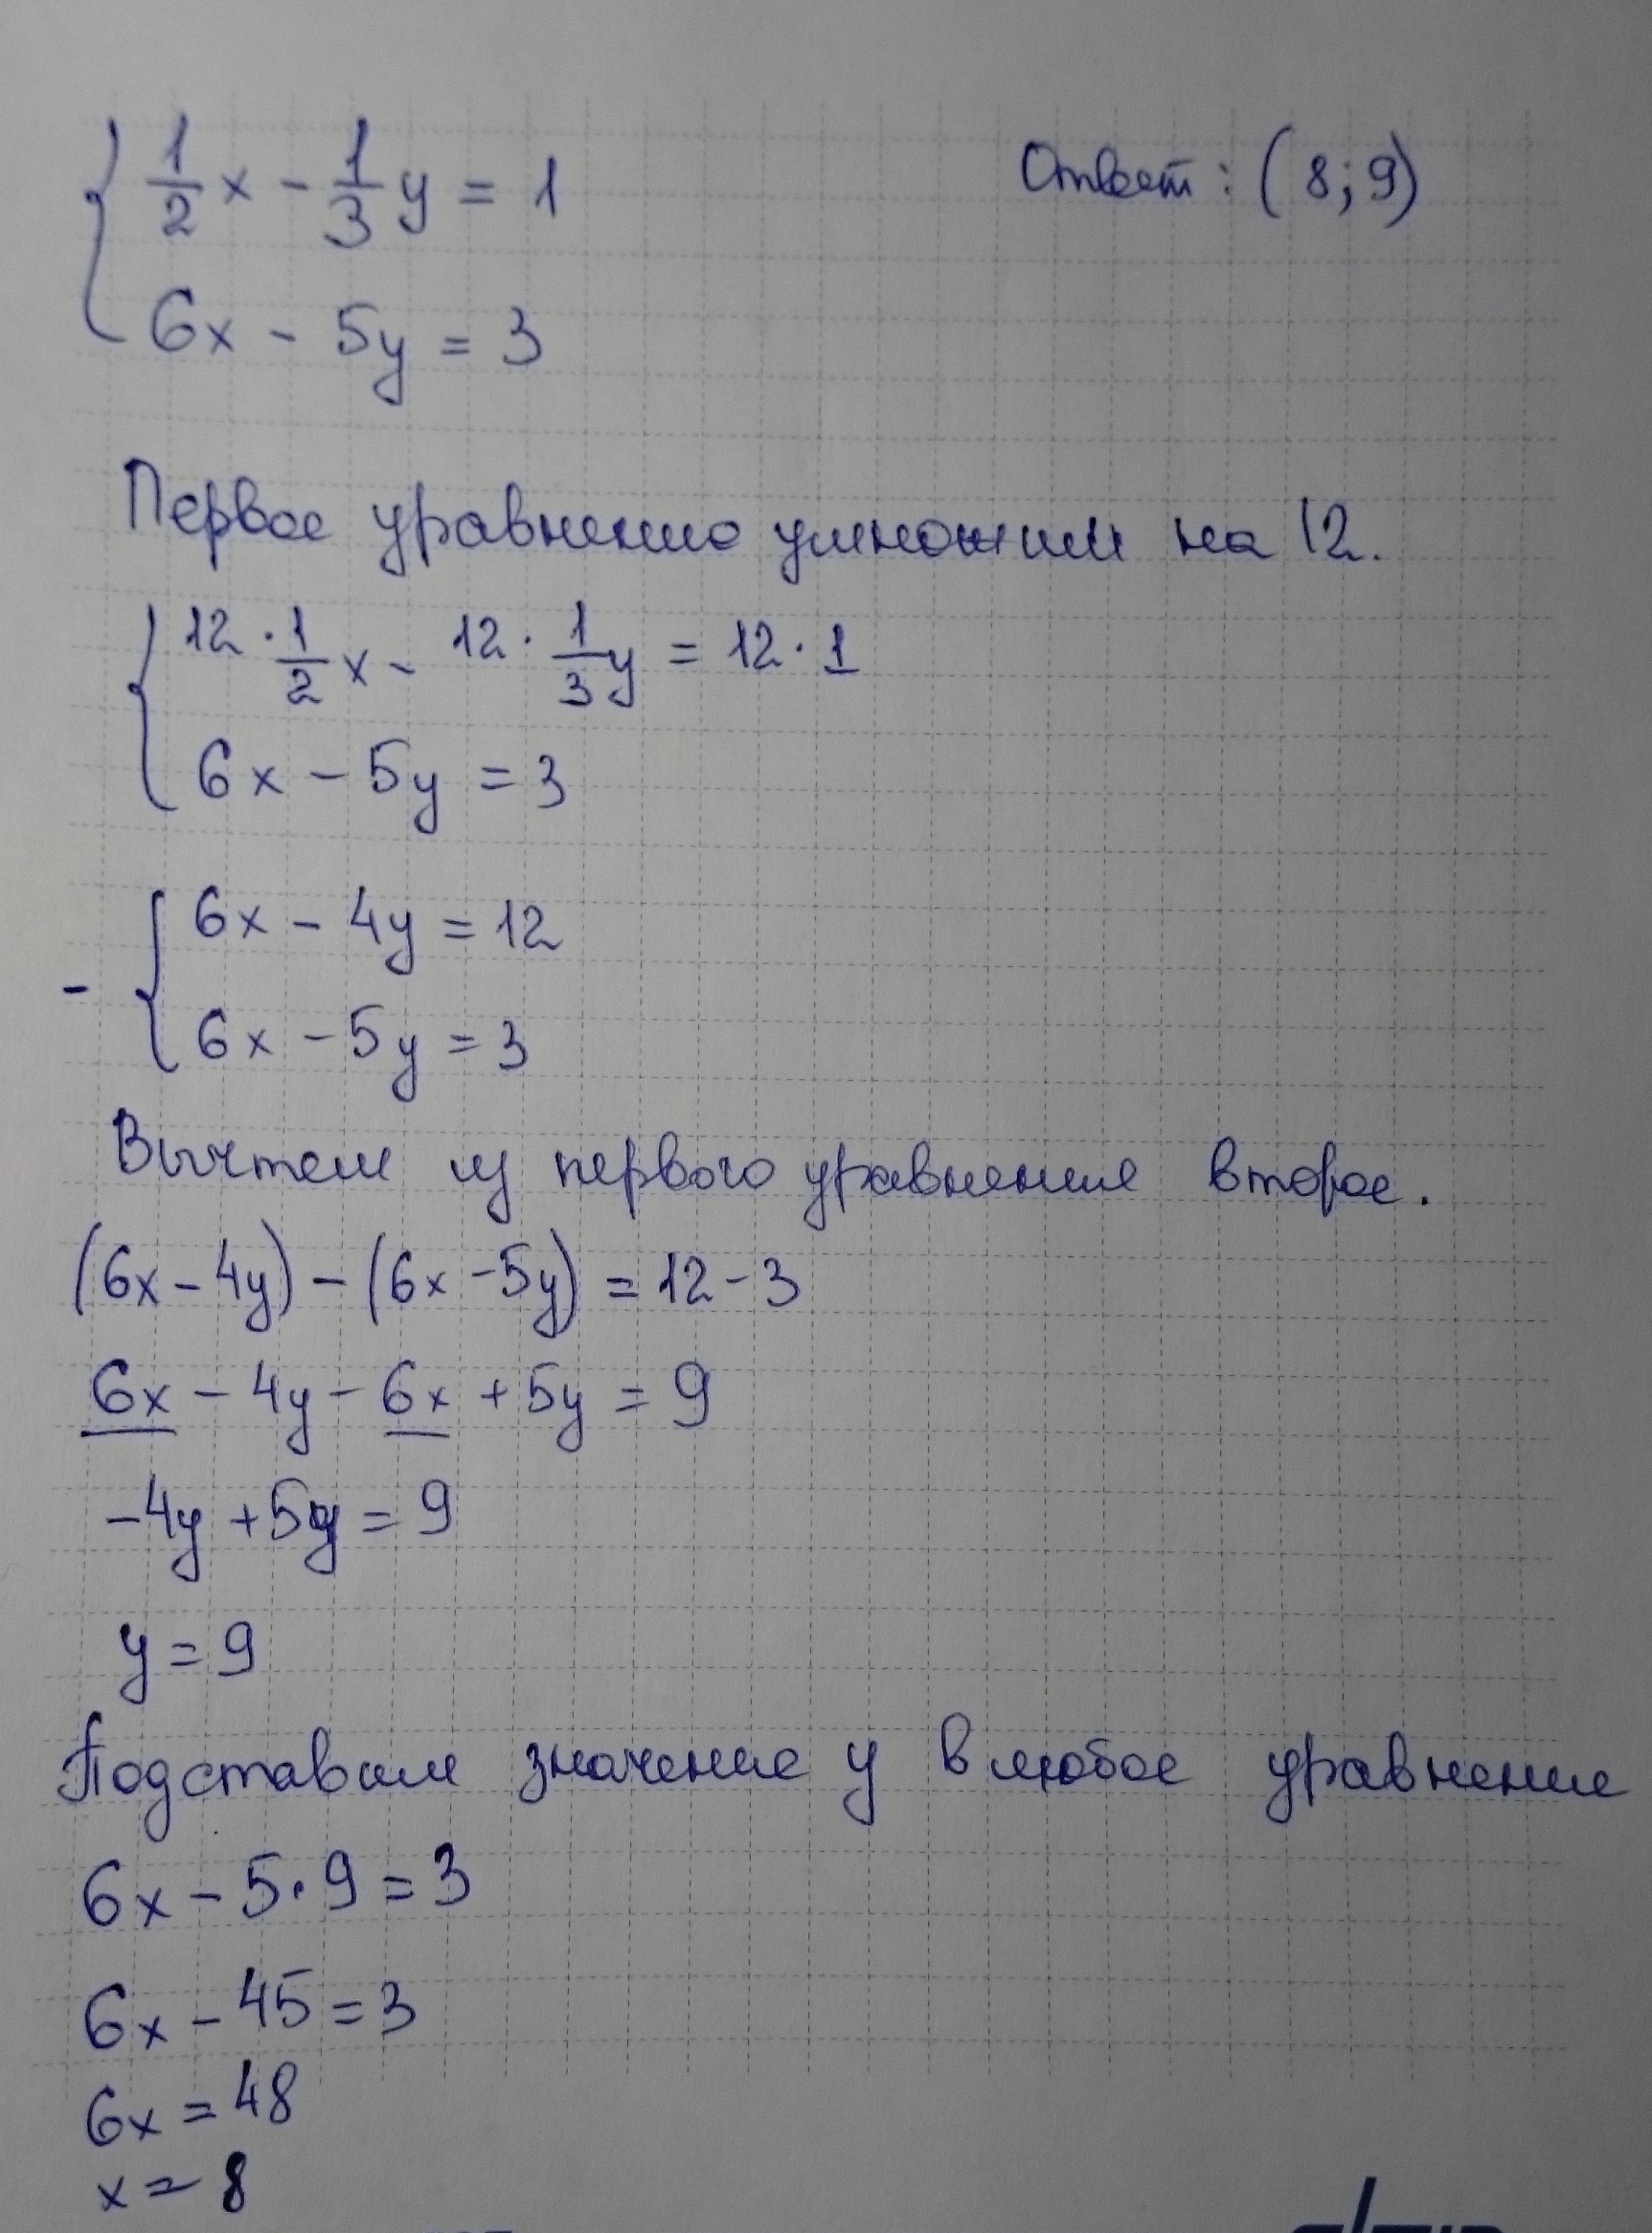 1/2 x - 1/3 y = 1
6x - 5y = 3
Ответ: (8; 9)
Первое уравнение умножим на 12.
12 · 1/2 x - 12 · 1/3 y = 12 · 1
6x - 5y = 3
- { 6x - 4y = 12
6x - 5y = 3
Вычтем из первого уравнения второе.
(6x - 4y) - (6x - 5y) = 12 - 3
6x - 4y - 6x + 5y = 9
-4y + 5y = 9
y = 9
Подставим значение y в любое уравнение
6x - 5 · 9 = 3
6x - 45 = 3
6x = 48
x = 8